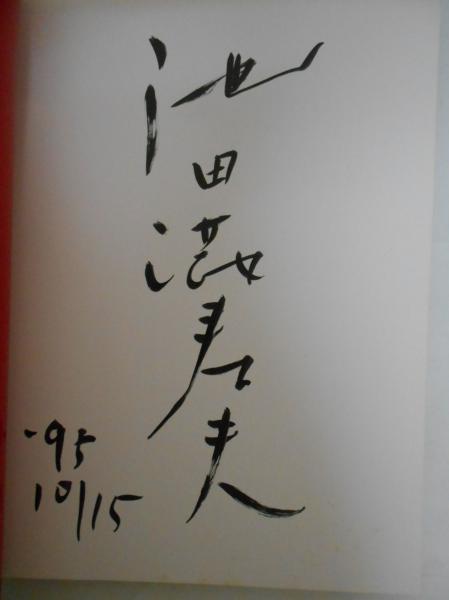 池田満寿夫
-95
10/15